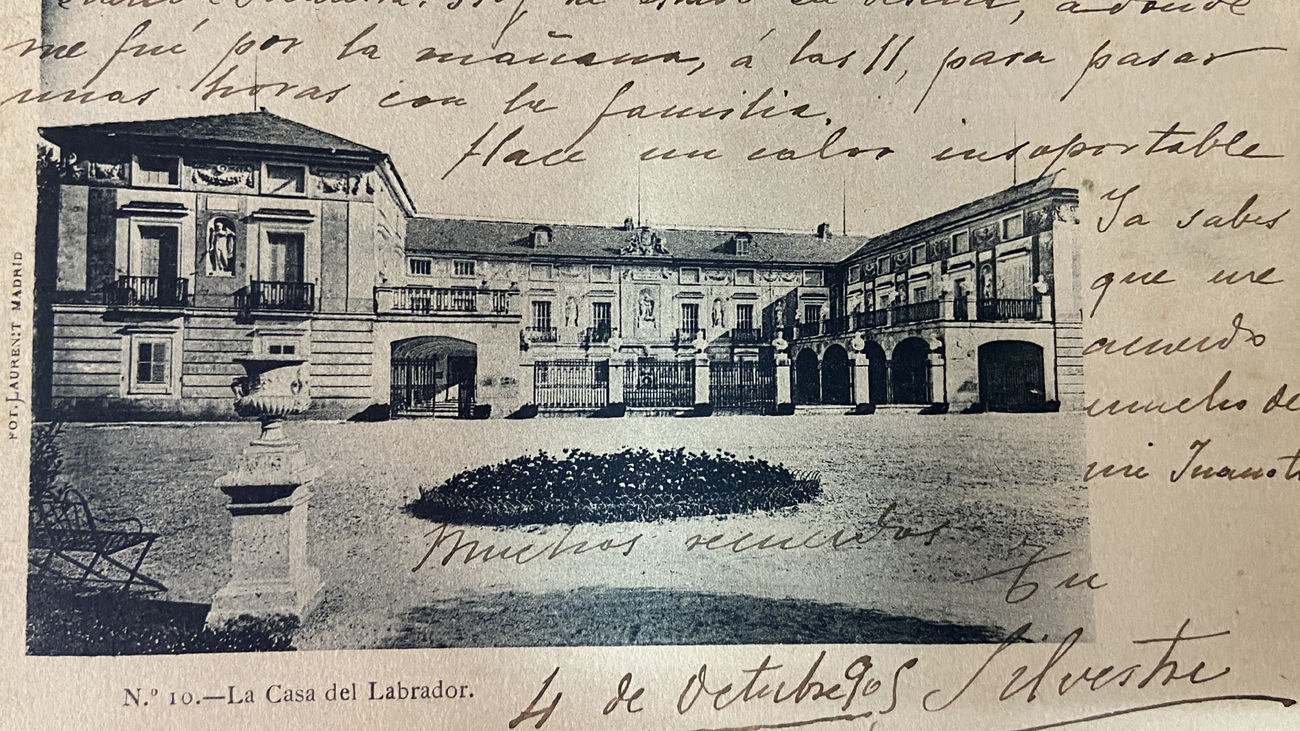 me fué por la mañana, á las 11, para pasar
unas horas con la familia.
Hace un calor insoportable
Ya sabes
que me
acuerdo
mucho de
mi
Muchos recuerdos
Tu
Silvestre
4 de Octubre 905
N.º 10.—La Casa del Labrador.
FOT. LAURENT MADRID